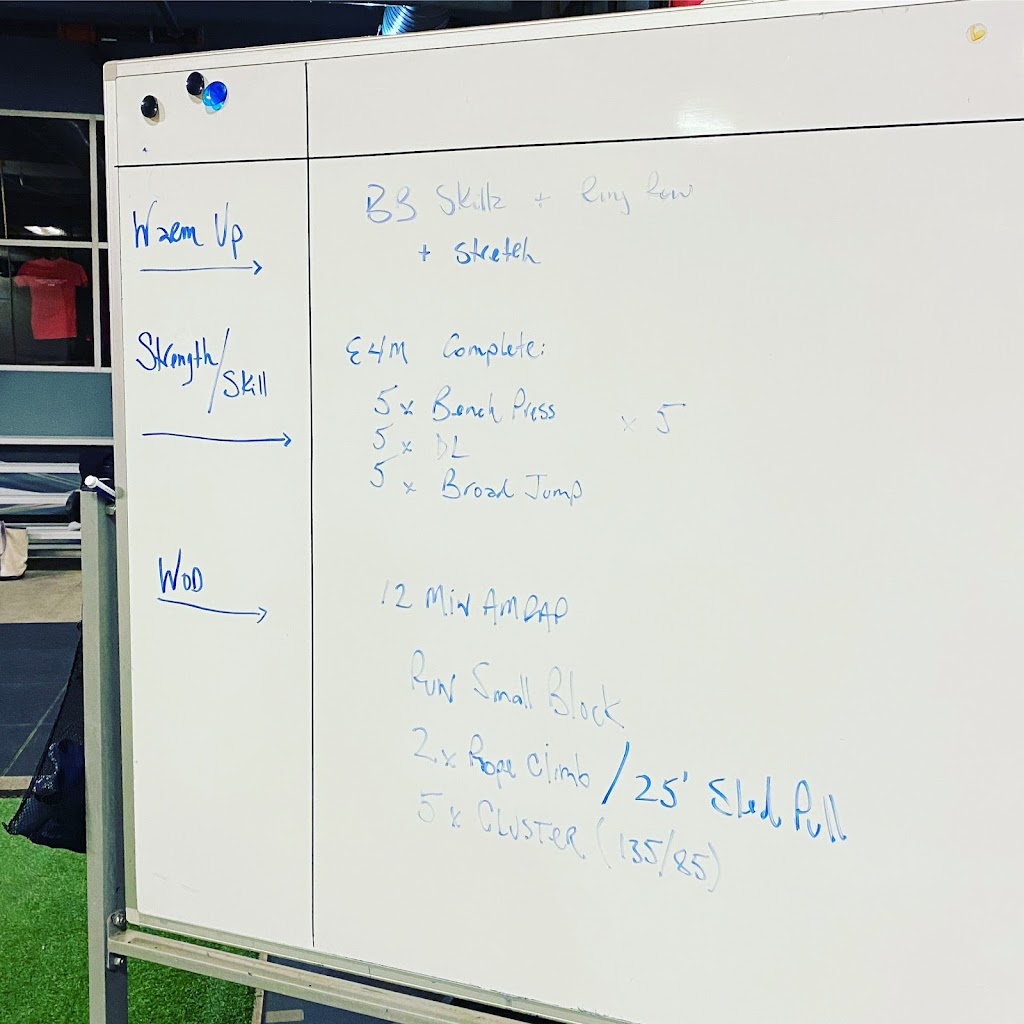 Warm Up
BB Skillz + Ring Row
+ Stretch
Strength/Skill
E4M Complete:
5 x Bench Press
5 x DL
5 x Broad Jump
x 5
WOD
12 Min AMRAP
Run Small Block
2 x Rope Climb / 25' Sled Pull
5 x CLUSTER (135/85)